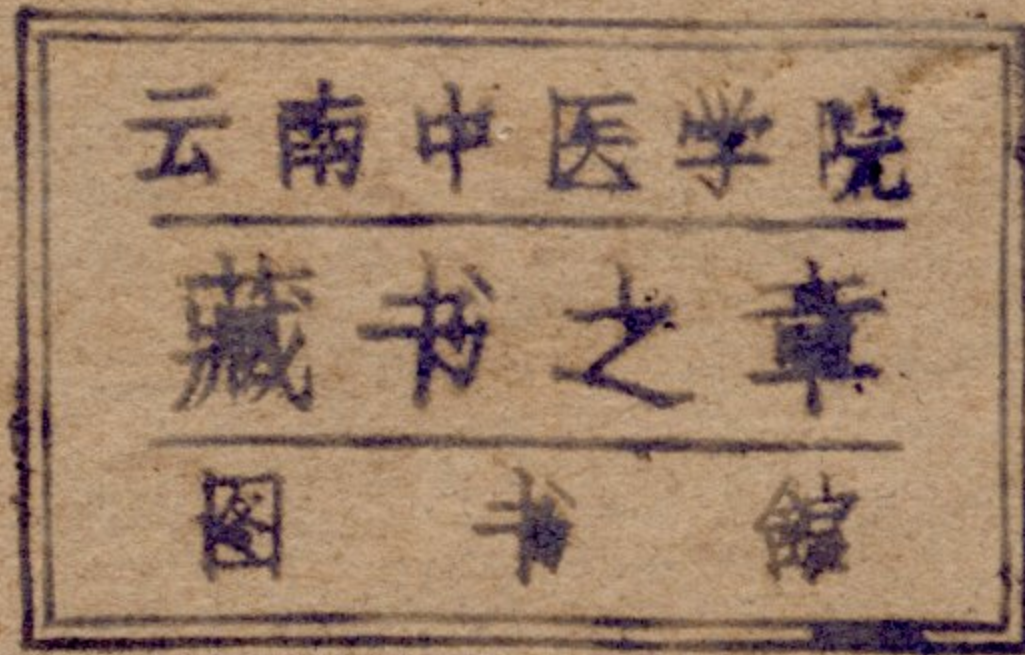 云南中医学院
藏书之章
图书館